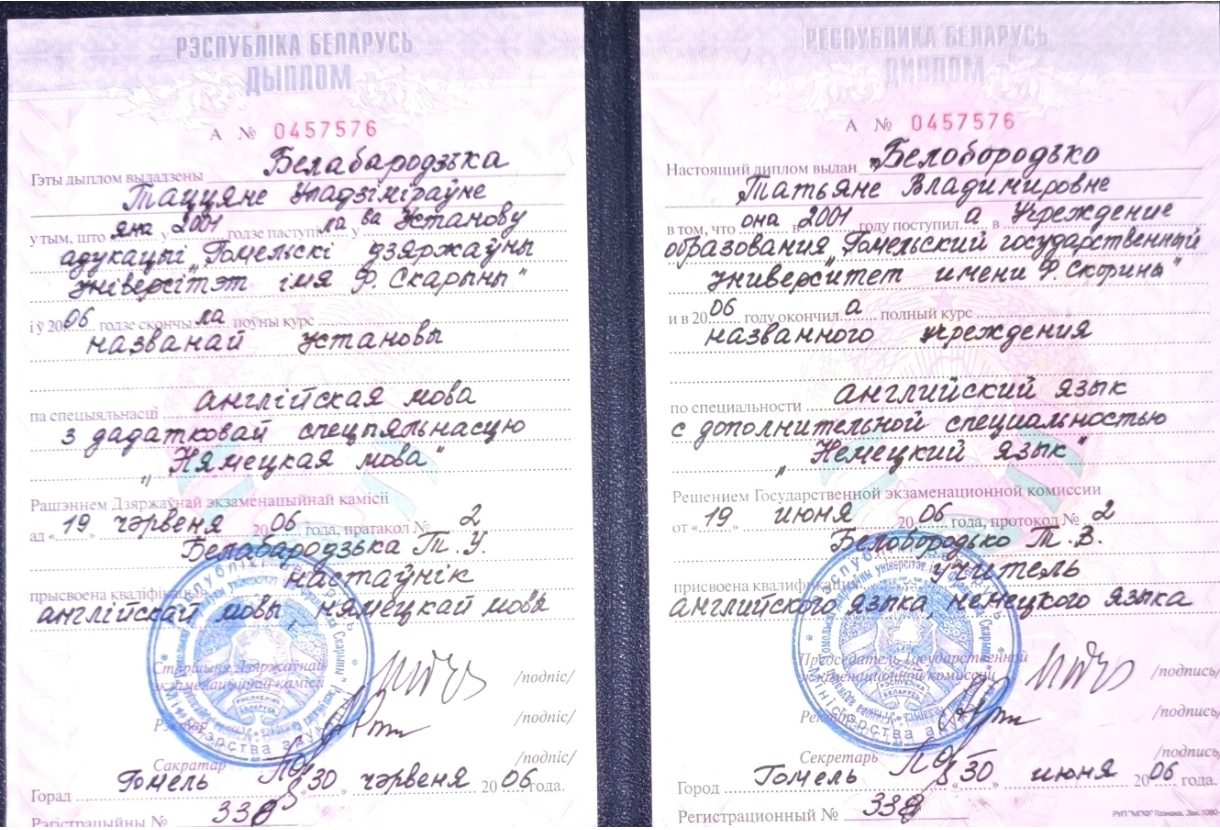 РЭСПУБЛІКА БЕЛАРУСЬ
ДЫПЛОМ
А № 0457576
Гэты дыплом выдадзены Белабародзька
Таццяне Уладзіміраўне
у тым, што яна у 2001 годзе паступіла ў ва Установу
адукацыі „Гомельскі дзяржаўны
ўніверсітэт імя Ф. Скарыны"
і ў 2006 годзе скончыла поўны курс
названай установы
па спецыяльнасці англійская мова
з дадатковай спецыяльнасцю
„Нямецкая мова"
Рашэннем Дзяржаўнай экзаменацыйнай камісіі
ад «19» чэрвеня 2006 года, пратакол № 2
Белабародзька Т. У.
прысвоена кваліфікацыя настаўнік
англійскай мовы, нямецкай мовы
Старшыня Дзяржаўнай
экзаменацыйнай камісіі /подпіс/
Рэктар /подпіс/
Сакратар /подпіс/
Горад Гомель «30» чэрвеня 2006 года.
Рэгістрацыйны № 338
РЕСПУБЛИКА БЕЛАРУСЬ
ДИПЛОМ
А № 0457576
Настоящий диплом выдан Белобородько
Татьяне Владимировне
в том, что она в 2001 году поступила в Учреждение
образования „Гомельский государственный
университет имени Ф. Скорины"
и в 2006 году окончила полный курс
названного учреждения
по специальности английский язык
с дополнительной специальностью
„Немецкий язык"
Решением Государственной экзаменационной комиссии
от «19» июня 2006 года, протокол № 2
Белобородько Т. В.
присвоена квалификация учитель
английского языка, немецкого языка
Председатель Государственной
экзаменационной комиссии /подпись/
Ректор /подпись/
Секретарь /подпись/
Город Гомель «30» июня 2006 года.
Регистрационный № 338